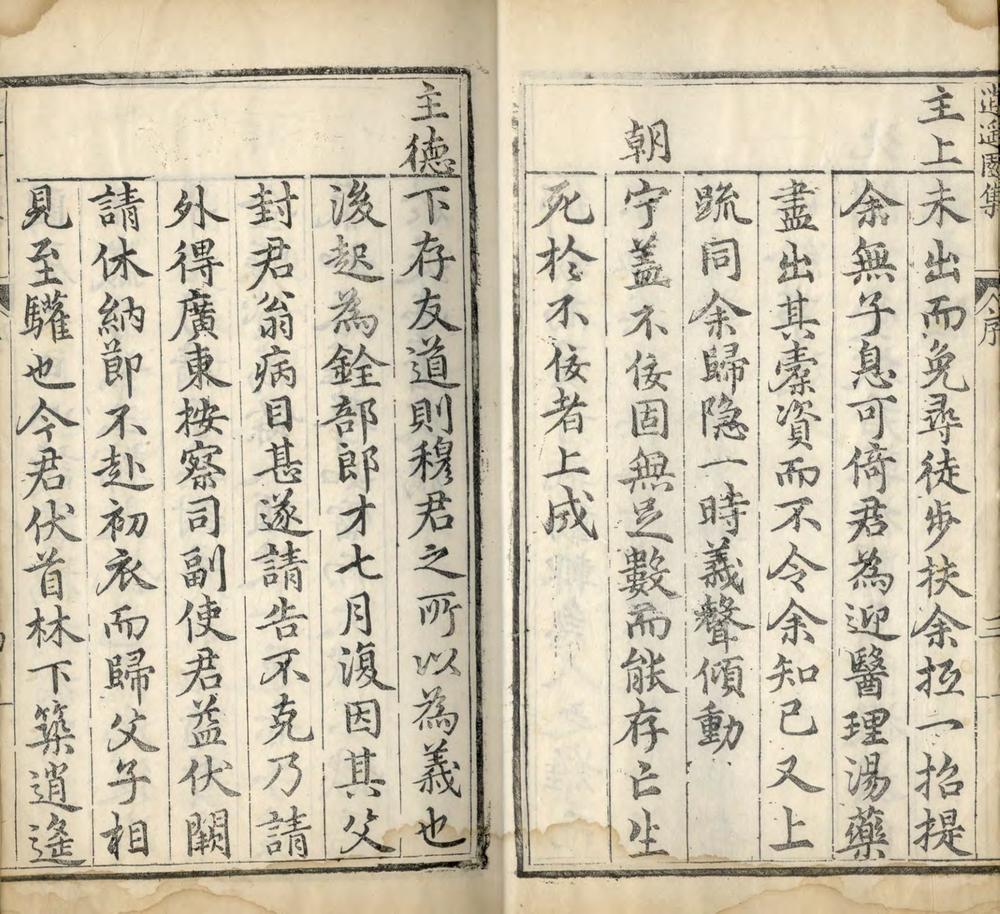 逍遙園集
序
三
主上
未出而免尋徒步扶余抵一招提
余無子息可倚君為迎醫理湯藥
盡出其橐資而不令余知已又上
疏同余歸隐一時義聲傾動
朝
宁蓋不佞固無足數而能存亡生
死於不佞者上成
主德
下存友道則穆君之所以為義也
後起為銓部郎才七月復因其父
封君翁病目甚遂請告不克乃請
外得廣東按察司副使君益伏闕
請休納節不赴初衣而歸父子相
見至驩也今君伏首林下築逍遙